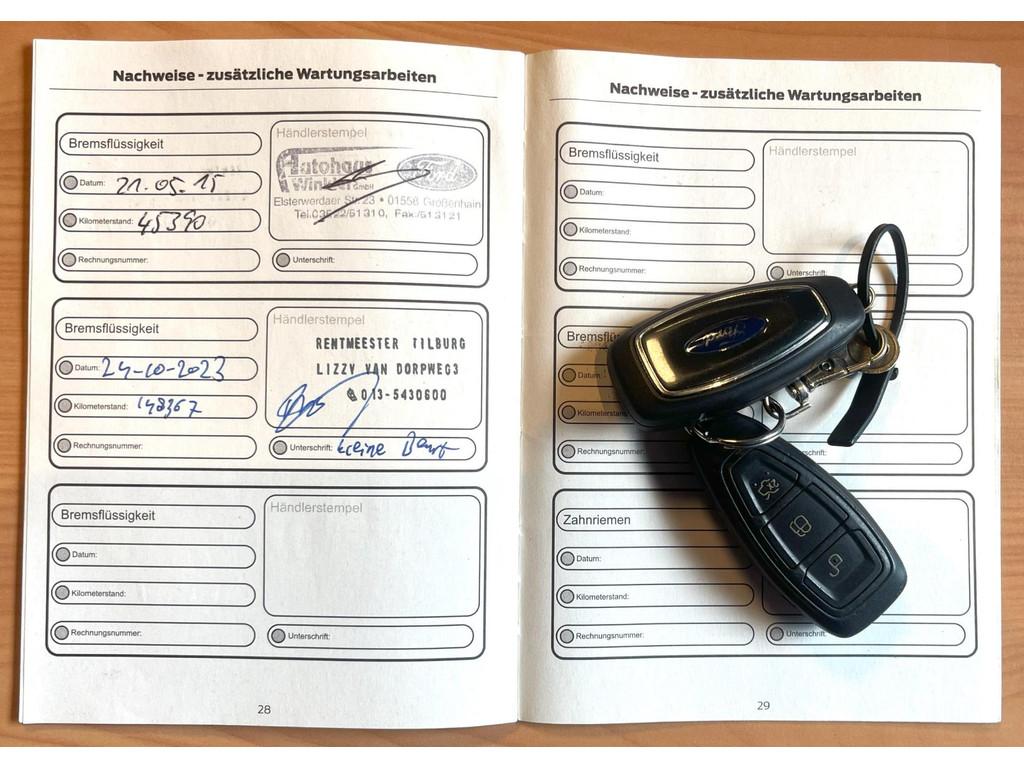 Nachweise - zusätzliche Wartungsarbeiten
Bremsflüssigkeit
Datum: 21.05.15
Kilometerstand: 45390
Rechnungsnummer:
Händlerstempel
Autohaus
Winkler GmbH
Ford
Elsterwerdaer Str. 23 • 01558 Großenhain
Tel. 03522/51310, Fax:/513121
Unterschrift:
Bremsflüssigkeit
Datum: 24-10-2023
Kilometerstand: 148367
Rechnungsnummer:
Händlerstempel
RENTMEESTER TILBURG
LIZZY VAN DORPWEG3
013-5430600
Unterschrift: kleine
Bremsflüssigkeit
Datum:
Kilometerstand:
Rechnungsnummer:
Händlerstempel
Unterschrift:
28
Nachweise - zusätzliche Wartungsarbeiten
Bremsflüssigkeit
Datum:
Kilometerstand:
Rechnungsnummer:
Händlerstempel
Unterschrift:
Bremsflü
Datum:
Kilometerstand:
Rechnungsnummer:
Ford
Zahnriemen
Datum:
Kilometerstand:
Rechnungsnummer:
Unterschrift:
29